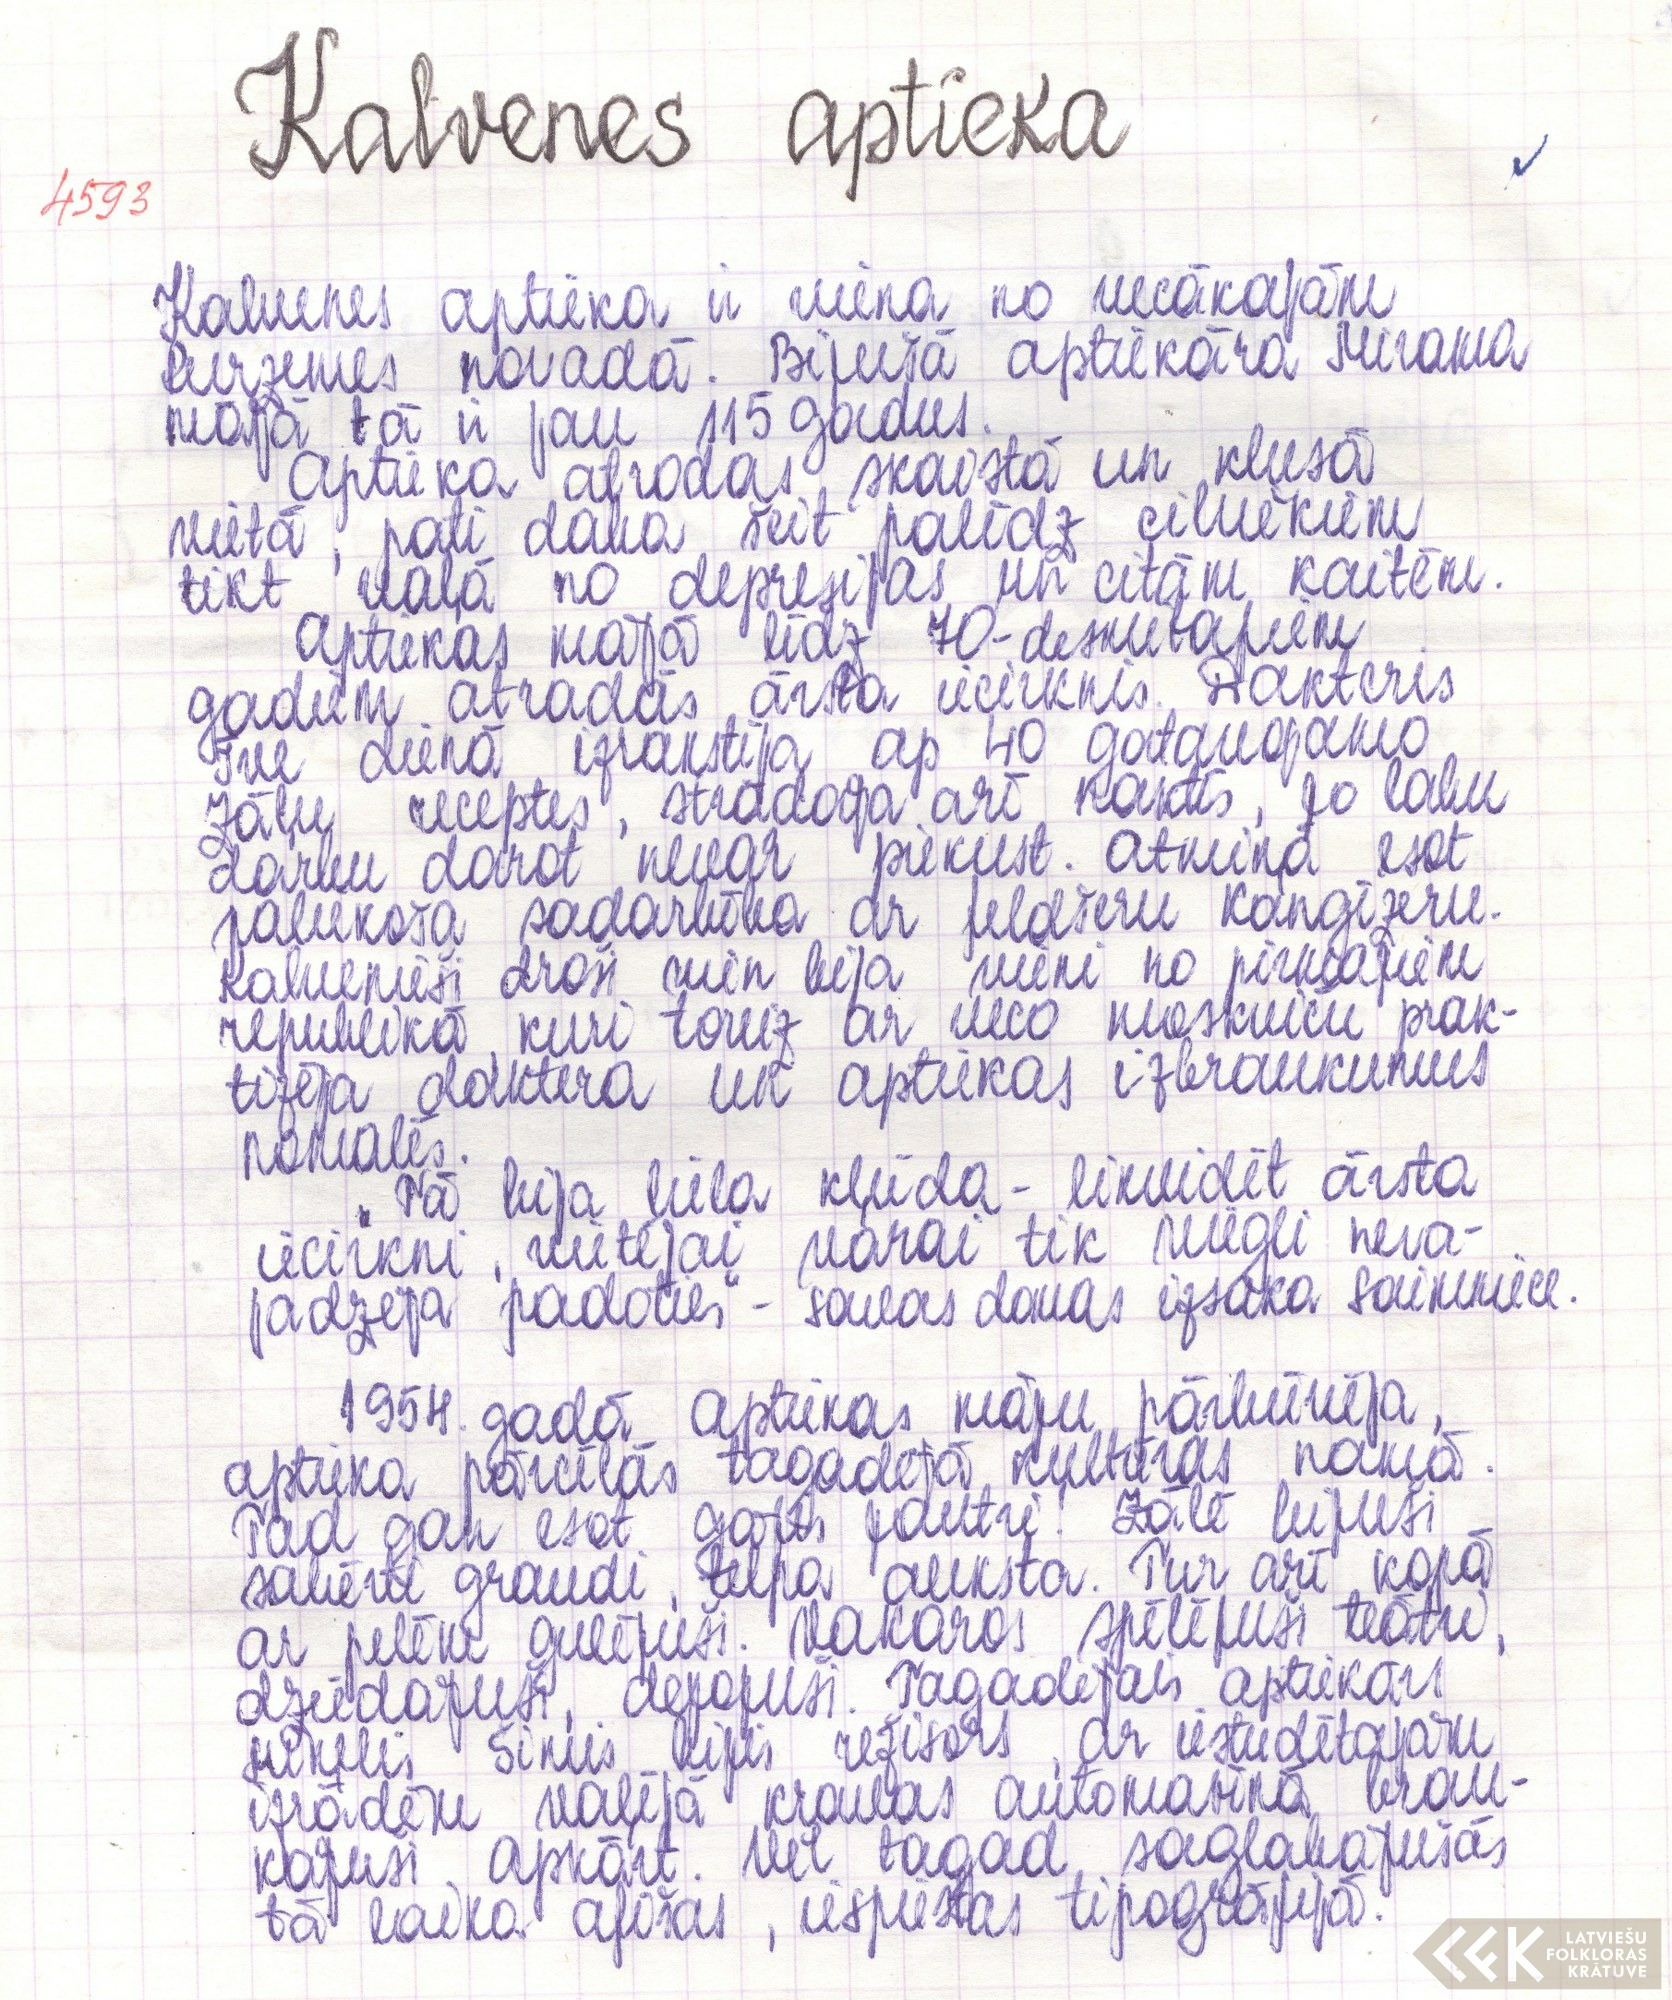 Kalvenes aptieka
4593
Kalvenes aptieka ir viena no vecākajām
Kurzemes novadā. Bijušā aptiekāra
mājā tā ir jau 115 gadus.
Aptieka atrodas skaistā un klusā
vietā, pati daba šeit palīdz cilvēkiem
tikt vaļā no depresijas un citām kaitēm.
Aptiekas mājā līdz 70-desmitajiem
gadiem atradās ārsta iecirknis. Dakteris
Īve dienā izrakstīja ap 40 gatavojamo
zāļu receptes, strādāja arī naktīs, jo labu
darbu darot nevar piekust. Atmiņā esot
palikusi sadarbība ar feldšeru Kangīzeru.
Kalvenieši droši vien bija vieni no pirmajiem
republikā, kuri toreiz ar veco moskviču prak-
tizēja daktera un aptiekas izbraukumus
nomalēs.
"Tā bija liela kļūda - likvidēt ārsta
iecirkni, vietējai varai tik viegli neva-
jadzēja padoties" - savas domas izsaka saimniece.
1954. gadā aptiekas māju pārbūvēja,
aptieka pārcēlās tagadējā kultūras namā.
Tad gan esot gājis jautri! Zālē bijuši
sabērti graudi, telpa auksta. Tur arī kopā
ar pelēm gulējuši. Vakaros spēlējuši teātri,
dziedājuši, dejojuši. Tagadējais aptiekārs
Miķelis Šimis bijis režisors, ar iestudētajām
izrādēm vaļējā kravas automašīnā brau-
kājuši apkārt. Vēl tagad saglabājušās
tā laika afišas, iespiestas tipogrāfijā.
LATVIEŠU
FOLKLORAS
KRĀTUVE